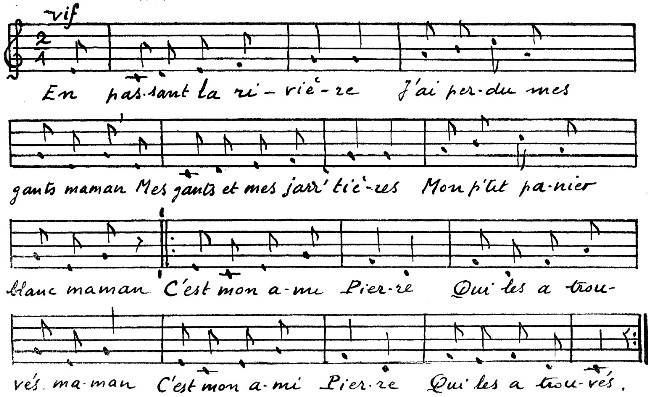 vif
2
4
En pas-sant la ri-viè-re J'ai per-du mes
gants maman Mes gants et mes jarr'tiè-res Mon p'tit pa-nier
blanc maman C'est mon a-mi Pier-re Qui les a trou-
vés. ma-man C'est mon a-mi Pier-re Qui les a trou-vés.